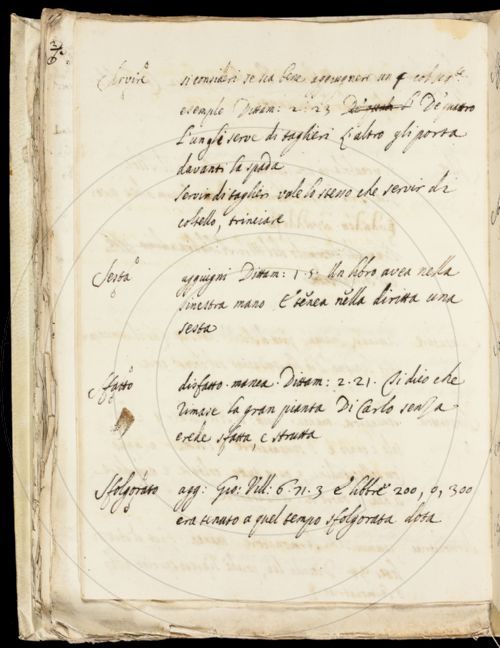 Servire si consideri se sia bene aggiugnere un
esemplo Dittam: 2. 23 De quatro
L'un gli serve di taglieri L'altro gli porta
davanti la spada
Servir di taglieri vale lo stesso che servir di
coltello, trinciare
Sesta aggiugni Dittam: 1. 5. Un libro avea nella
sinestra mano E tenea nella diritta una
sesta
Sfatto disfatto. manca. Dittam: 2. 21. Si dico che
rimase la gran pianta Di Carlo senza
erede sfatta, e strutta
Sfolgorato agg: Gio: Vill: 6. 71. 3 E libbre 200, o, 300
era tenuto a quel tempo sfolgorata dota